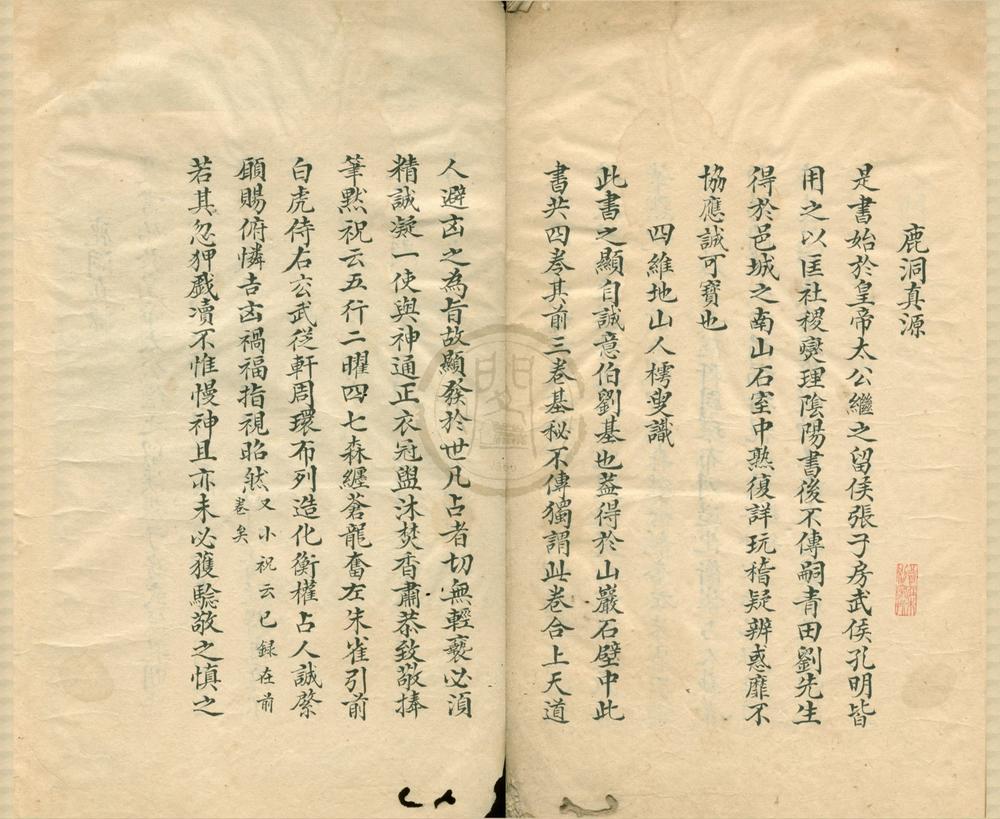 鹿洞真源
是書始於皇帝太公繼之留侯張子房武侯孔明皆
用之以匡社稷燮理陰陽書後不傳嗣青田劉先生
得於邑城之南山石室中熟復詳玩稽疑辨惑靡不
協應誠可寶也
四維地山人樗叟識
此書之顯自誠意伯劉基也葢得於山巖石壁中此
書共四卷其前三卷基秘不傳獨謂此卷合上天道
人避凶之為旨故顯發於世凡占者切無輕褻必湏
精誠凝一使與神通正衣冠盥沐焚香肅恭致敬捧
筆黙祝云五行二曜四七森纏蒼龍奮左朱雀引前
白虎侍右玄武從軒周環布列造化衡權占人誠祭
願賜俯憐吉凶禍福指視昭然又小祝云已録在前
卷矣
若其忽狎戲瀆不惟慢神且亦未必獲驗敬之慎之